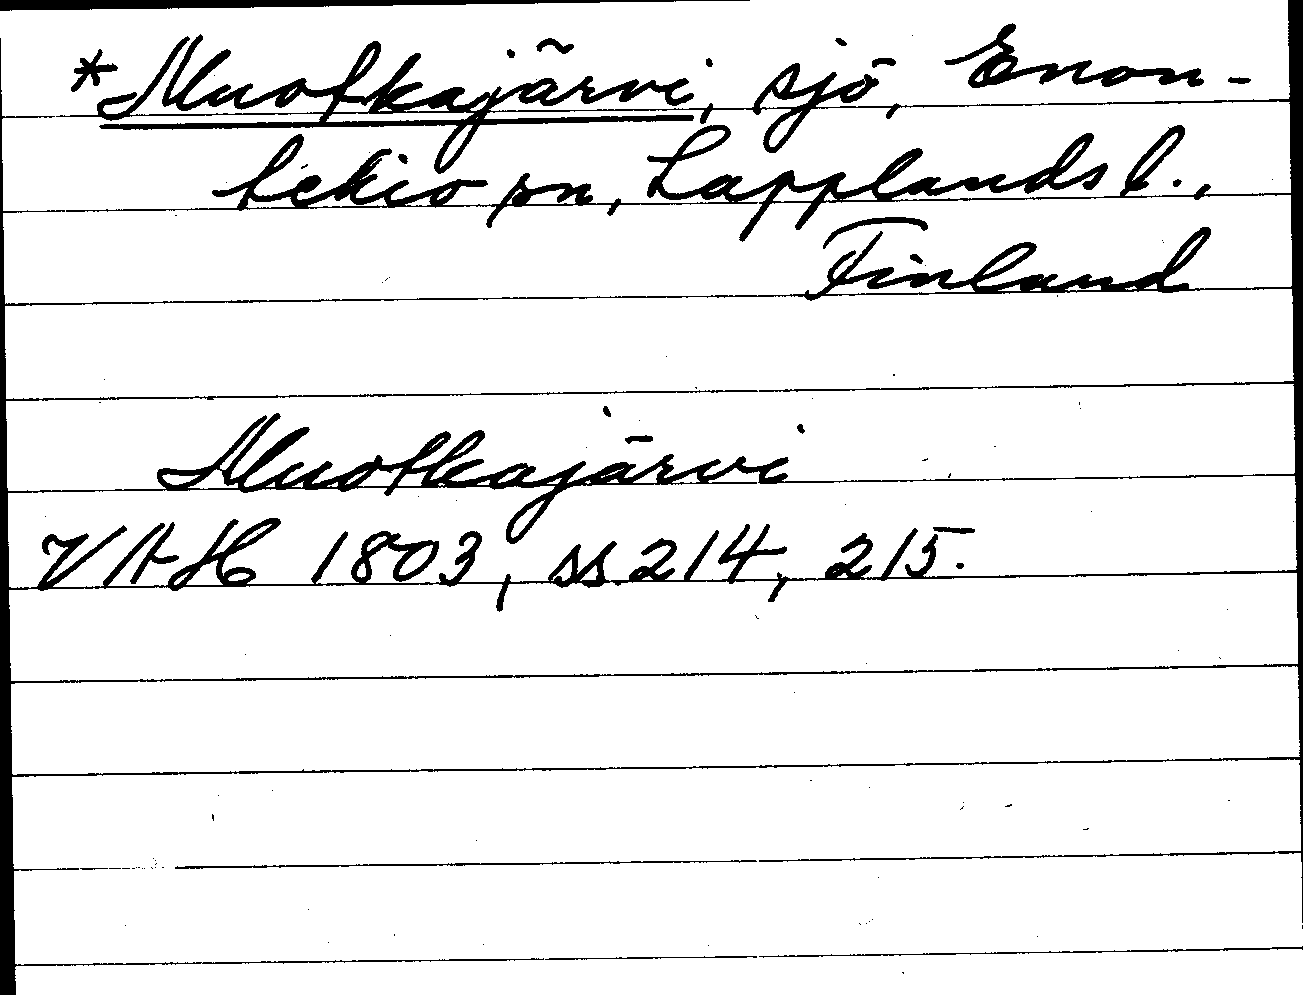 *Muotkajärvi, sjö, Enon-
tekiö sn, Lapplands l.,
Finland
Muotkajärvi
VAH 1803, ss. 214, 215.